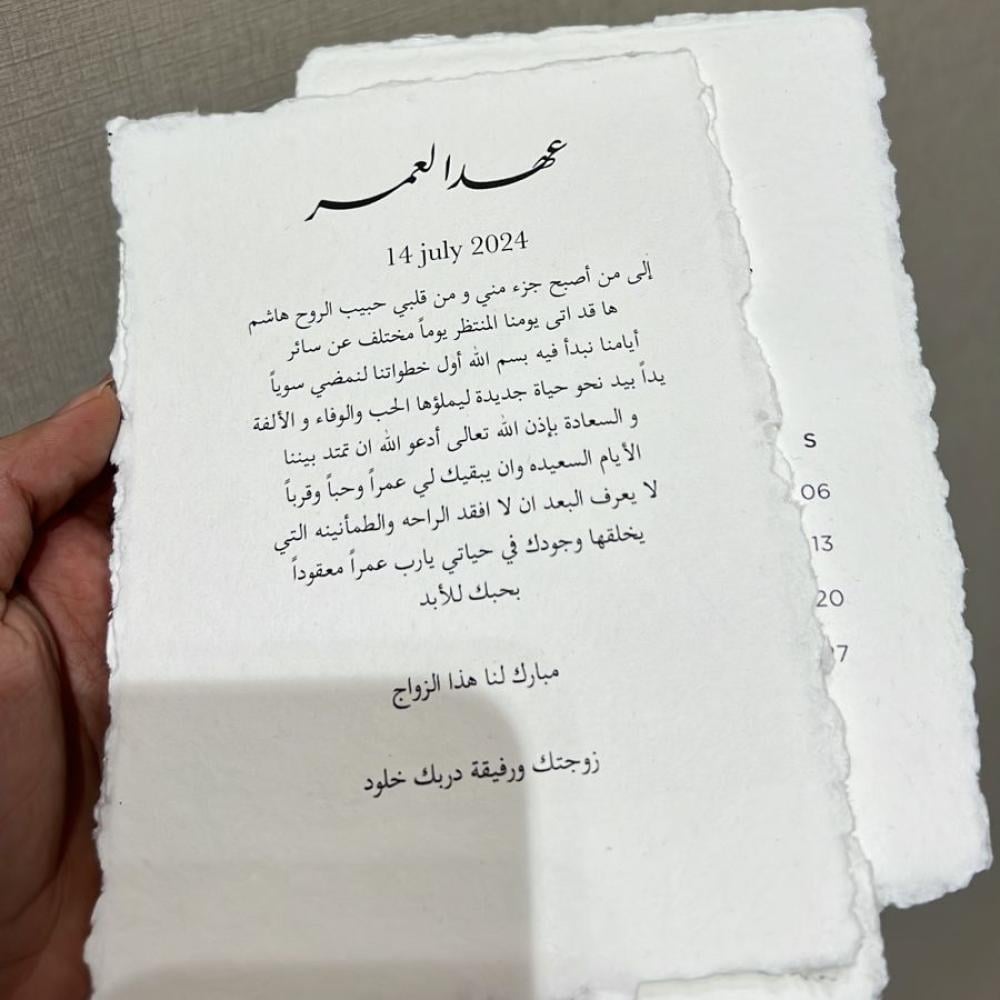 عهد العمر
14 july 2024
إلى من أصبح جزء مني و من قلبي حبيب الروح هاشم
ها قد اتى يومنا المنتظر يوماً مختلف عن سائر
أيامنا نبدأ فيه بسم الله أول خطواتنا لنمضي سوياً
يداً بيد نحو حياة جديدة ليملؤها الحب والوفاء و الألفة
و السعادة بإذن الله تعالى أدعو الله ان تمتد بيننا
الأيام السعيده وان يبقيك لي عمراً وحباً وقرباً
لا يعرف البعد ان لا افقد الراحه والطمأنينه التي
يخلقها وجودك في حياتي يارب عمراً معقوداً
بحبك للأبد
مبارك لنا هذا الزواج
زوجتك ورفيقة دربك خلود
S
06
13
20